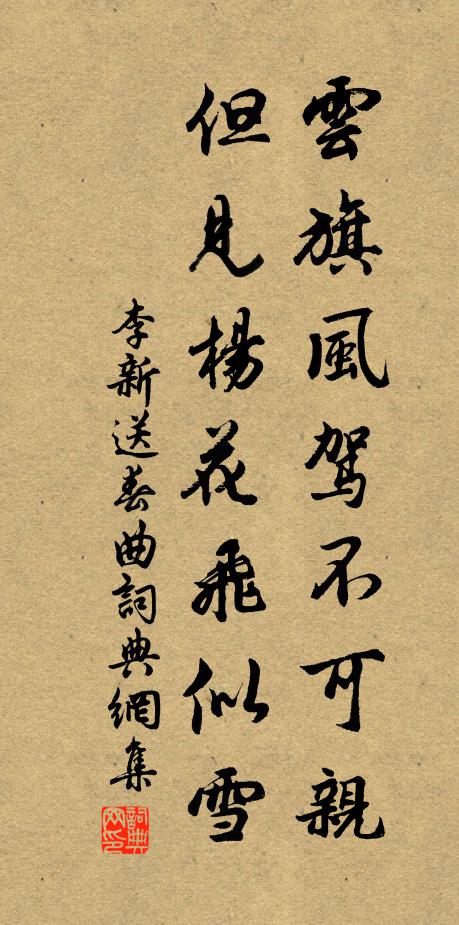 雲旗風駕不可親
但見楊花飛似雪
李新送春曲詞典網集
詞典網印